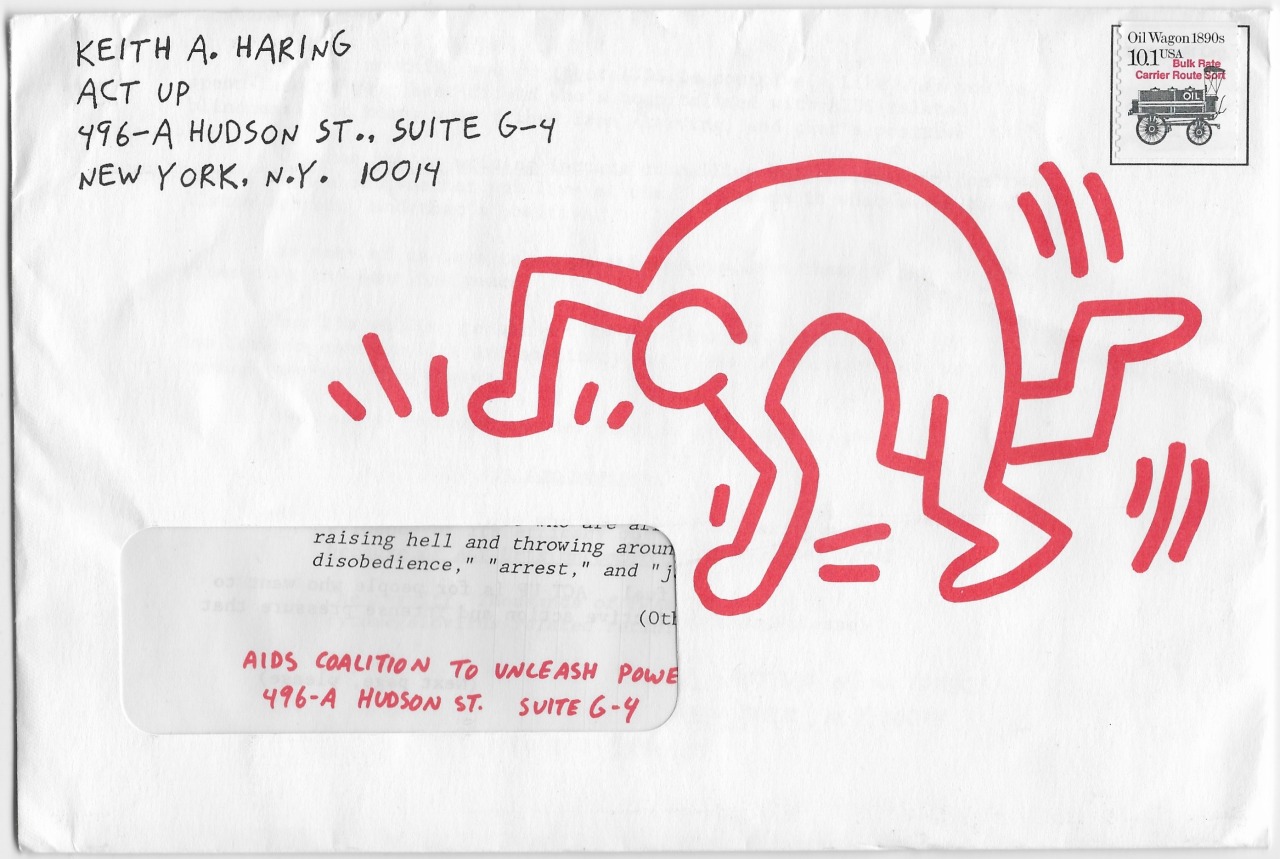 KEITH A. HARING
ACT UP
496-A HUDSON ST., SUITE G-4
NEW YORK, N.Y. 10014
Oil Wagon 1890s
10.1 USA
Bulk Rate
Carrier Route Sort
OIL
who are all
raising hell and throwing aroun
disobedience," "arrest," and "j
(Oth
AIDS COALITION TO UNLEASH POWE
496-A HUDSON ST. SUITE G-4